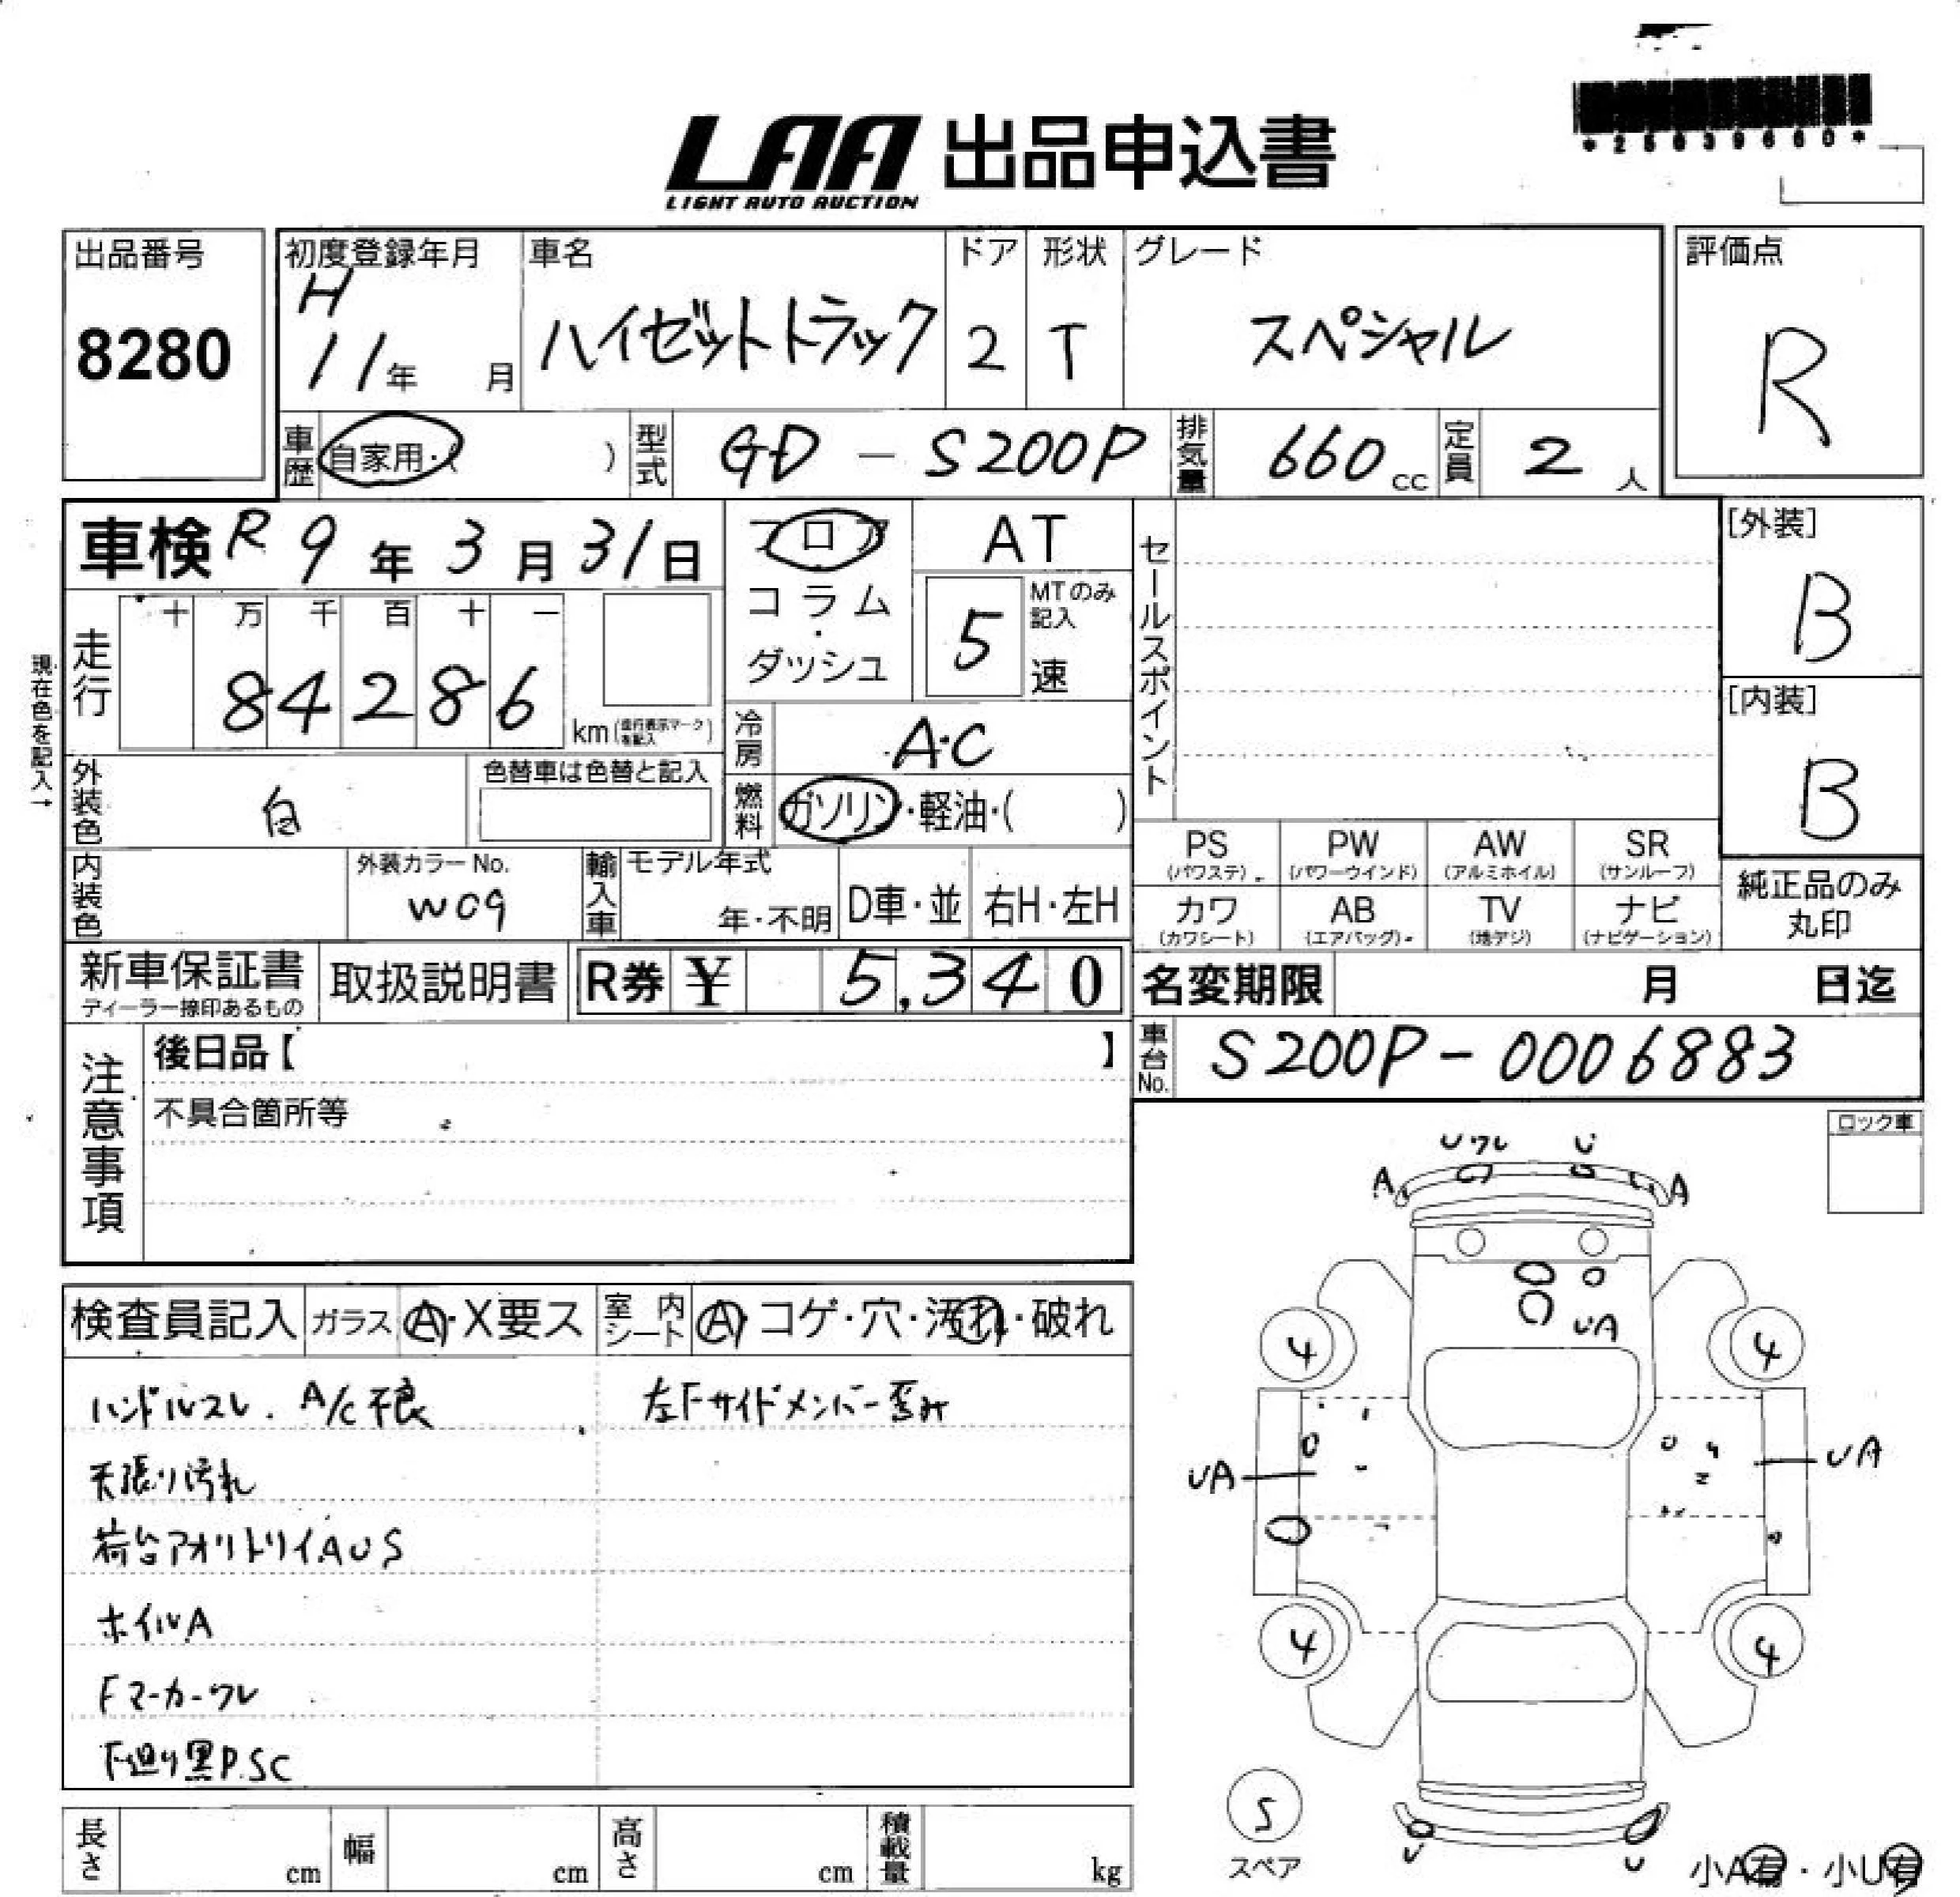 *25039660*
LAA 出品申込書
LIGHT AUTO AUCTION
出品番号
8280
初度登録年月
H
11年 月
車名
ハイゼットトラック
ドア
2
形状
T
グレード
スペシャル
評価点
R
車歴
自家用・( )
型式
GD - S200P
排気量
660 cc
定員
2 人
車検 R 9 年 3 月 31 日
フロア
コラム
・
ダッシュ
AT
5
MTのみ
記入
速
セールスポイント
[外装]
B
[内装]
B
現在色を記入→
走行
十 万 千 百 十 一
8 4 2 8 6
km(走行表示マークを記入)
冷房
A・C
外装色
白
色替車は色替と記入
燃料
ガソリン・軽油・( )
内装色
外装カラーNo.
W09
輸入車
モデル年式
年・不明
D車・並
右H・左H
PS
(パワステ)
PW
(パワーウインド)
AW
(アルミホイル)
SR
(サンルーフ)
カワ
(カワシート)
AB
(エアバッグ)
TV
(地デジ)
ナビ
(ナビゲーション)
純正品のみ
丸印
新車保証書
ディーラー捺印あるもの
取扱説明書
R券 ¥ 5,340
名変期限 月 日迄
車台No.
S200P-0006883
注意事項
後日品【 】
不具合箇所等
ロック車
検査員記入
ガラス
A・X要ス
室内シート
A・コゲ・穴・汚れ・破れ
ハンドルスレ. A/C不良
左Fサイドメンバー歪み
天張り汚れ
荷台アオリトリイAUS
ホイルA
Fマーカーワレ
下廻り黒P.SC
Uワレ U
A A
UA
4 4
UA UA
4 4
S
スペア
U U
小A有・小U有
長さ cm
幅 cm
高さ cm
積載量 kg